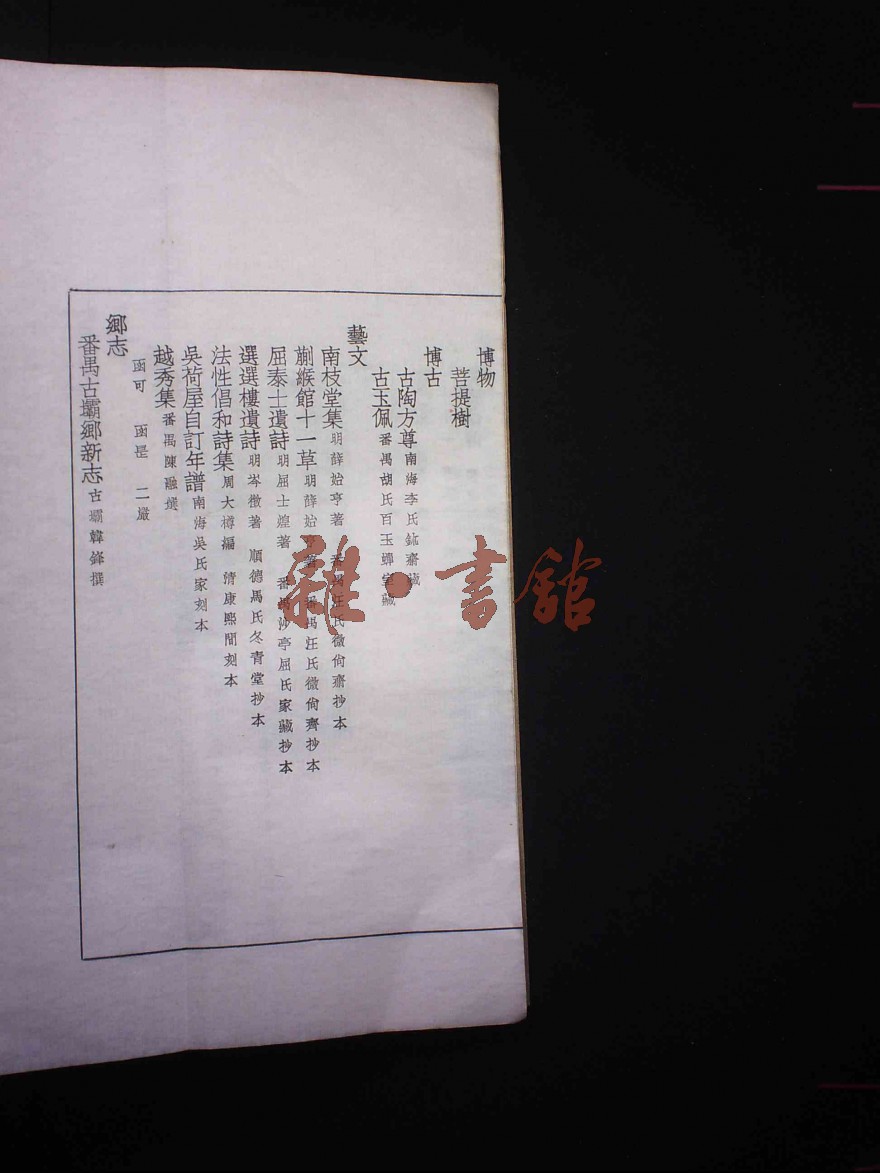 博物
菩提樹
博古
古陶方尊 南海李氏鉥齋藏
古玉佩 番禺胡氏百玉蟬室藏
藝文
南枝堂集 明薛始亨著 番禺汪氏微尙齋抄本
蒯緱館十一草 明薛始亨著 番禺汪氏微尙齋抄本
屈泰士遺詩 明屈士煌著 番禺沙亭屈氏家藏抄本
選選樓遺詩 明岑徵著 順德馬氏冬青堂抄本
法性倡和詩集 周大樽編 清康熙間刻本
吳荷屋自訂年譜 南海吳氏家刻本
越秀集 番禺陳融選
函可 函昰 二嚴
鄉志
番禺古壩鄉新志 古壩韓鋒撰
雜·書館